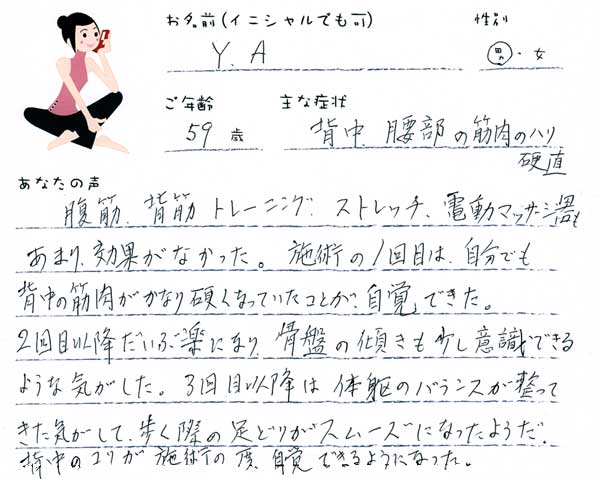 お名前(イニシャルでも可) 性別
Y. A 男・女
ご年齢 主な症状
59 歳 背中、腰部の筋肉のハリ
硬直
あなたの声
腹筋、背筋トレーニング、ストレッチ、電動マッサージ器も
あまり、効果がなかった。施術の1回目は、自分でも
背中の筋肉がかなり硬くなっていたことが、自覚できた。
2回目以降だいぶ楽になり、骨盤の傾きも少し意識できる
ような気がした。3回目以降は体躯のバランスが整って
きた気がして、歩く際の足どりがスムーズになったようだ。
背中のコリが施術の度、自覚できるようになった。